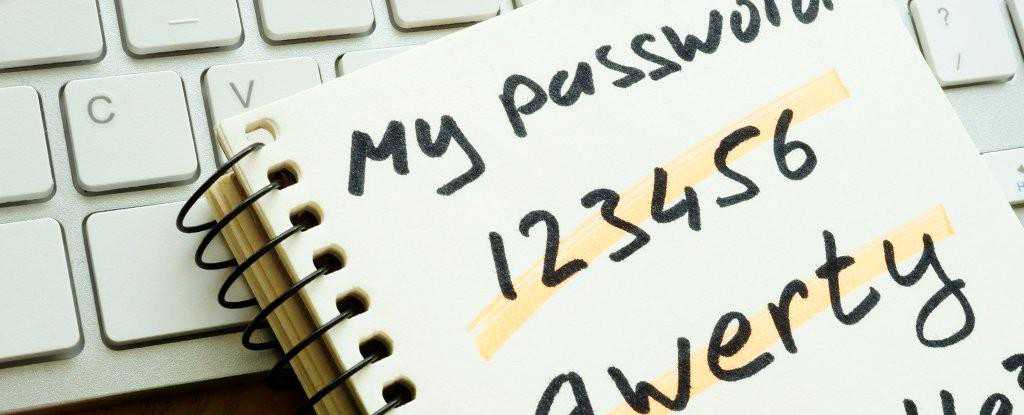 C
V
?
/
My password
123456
Qwerty